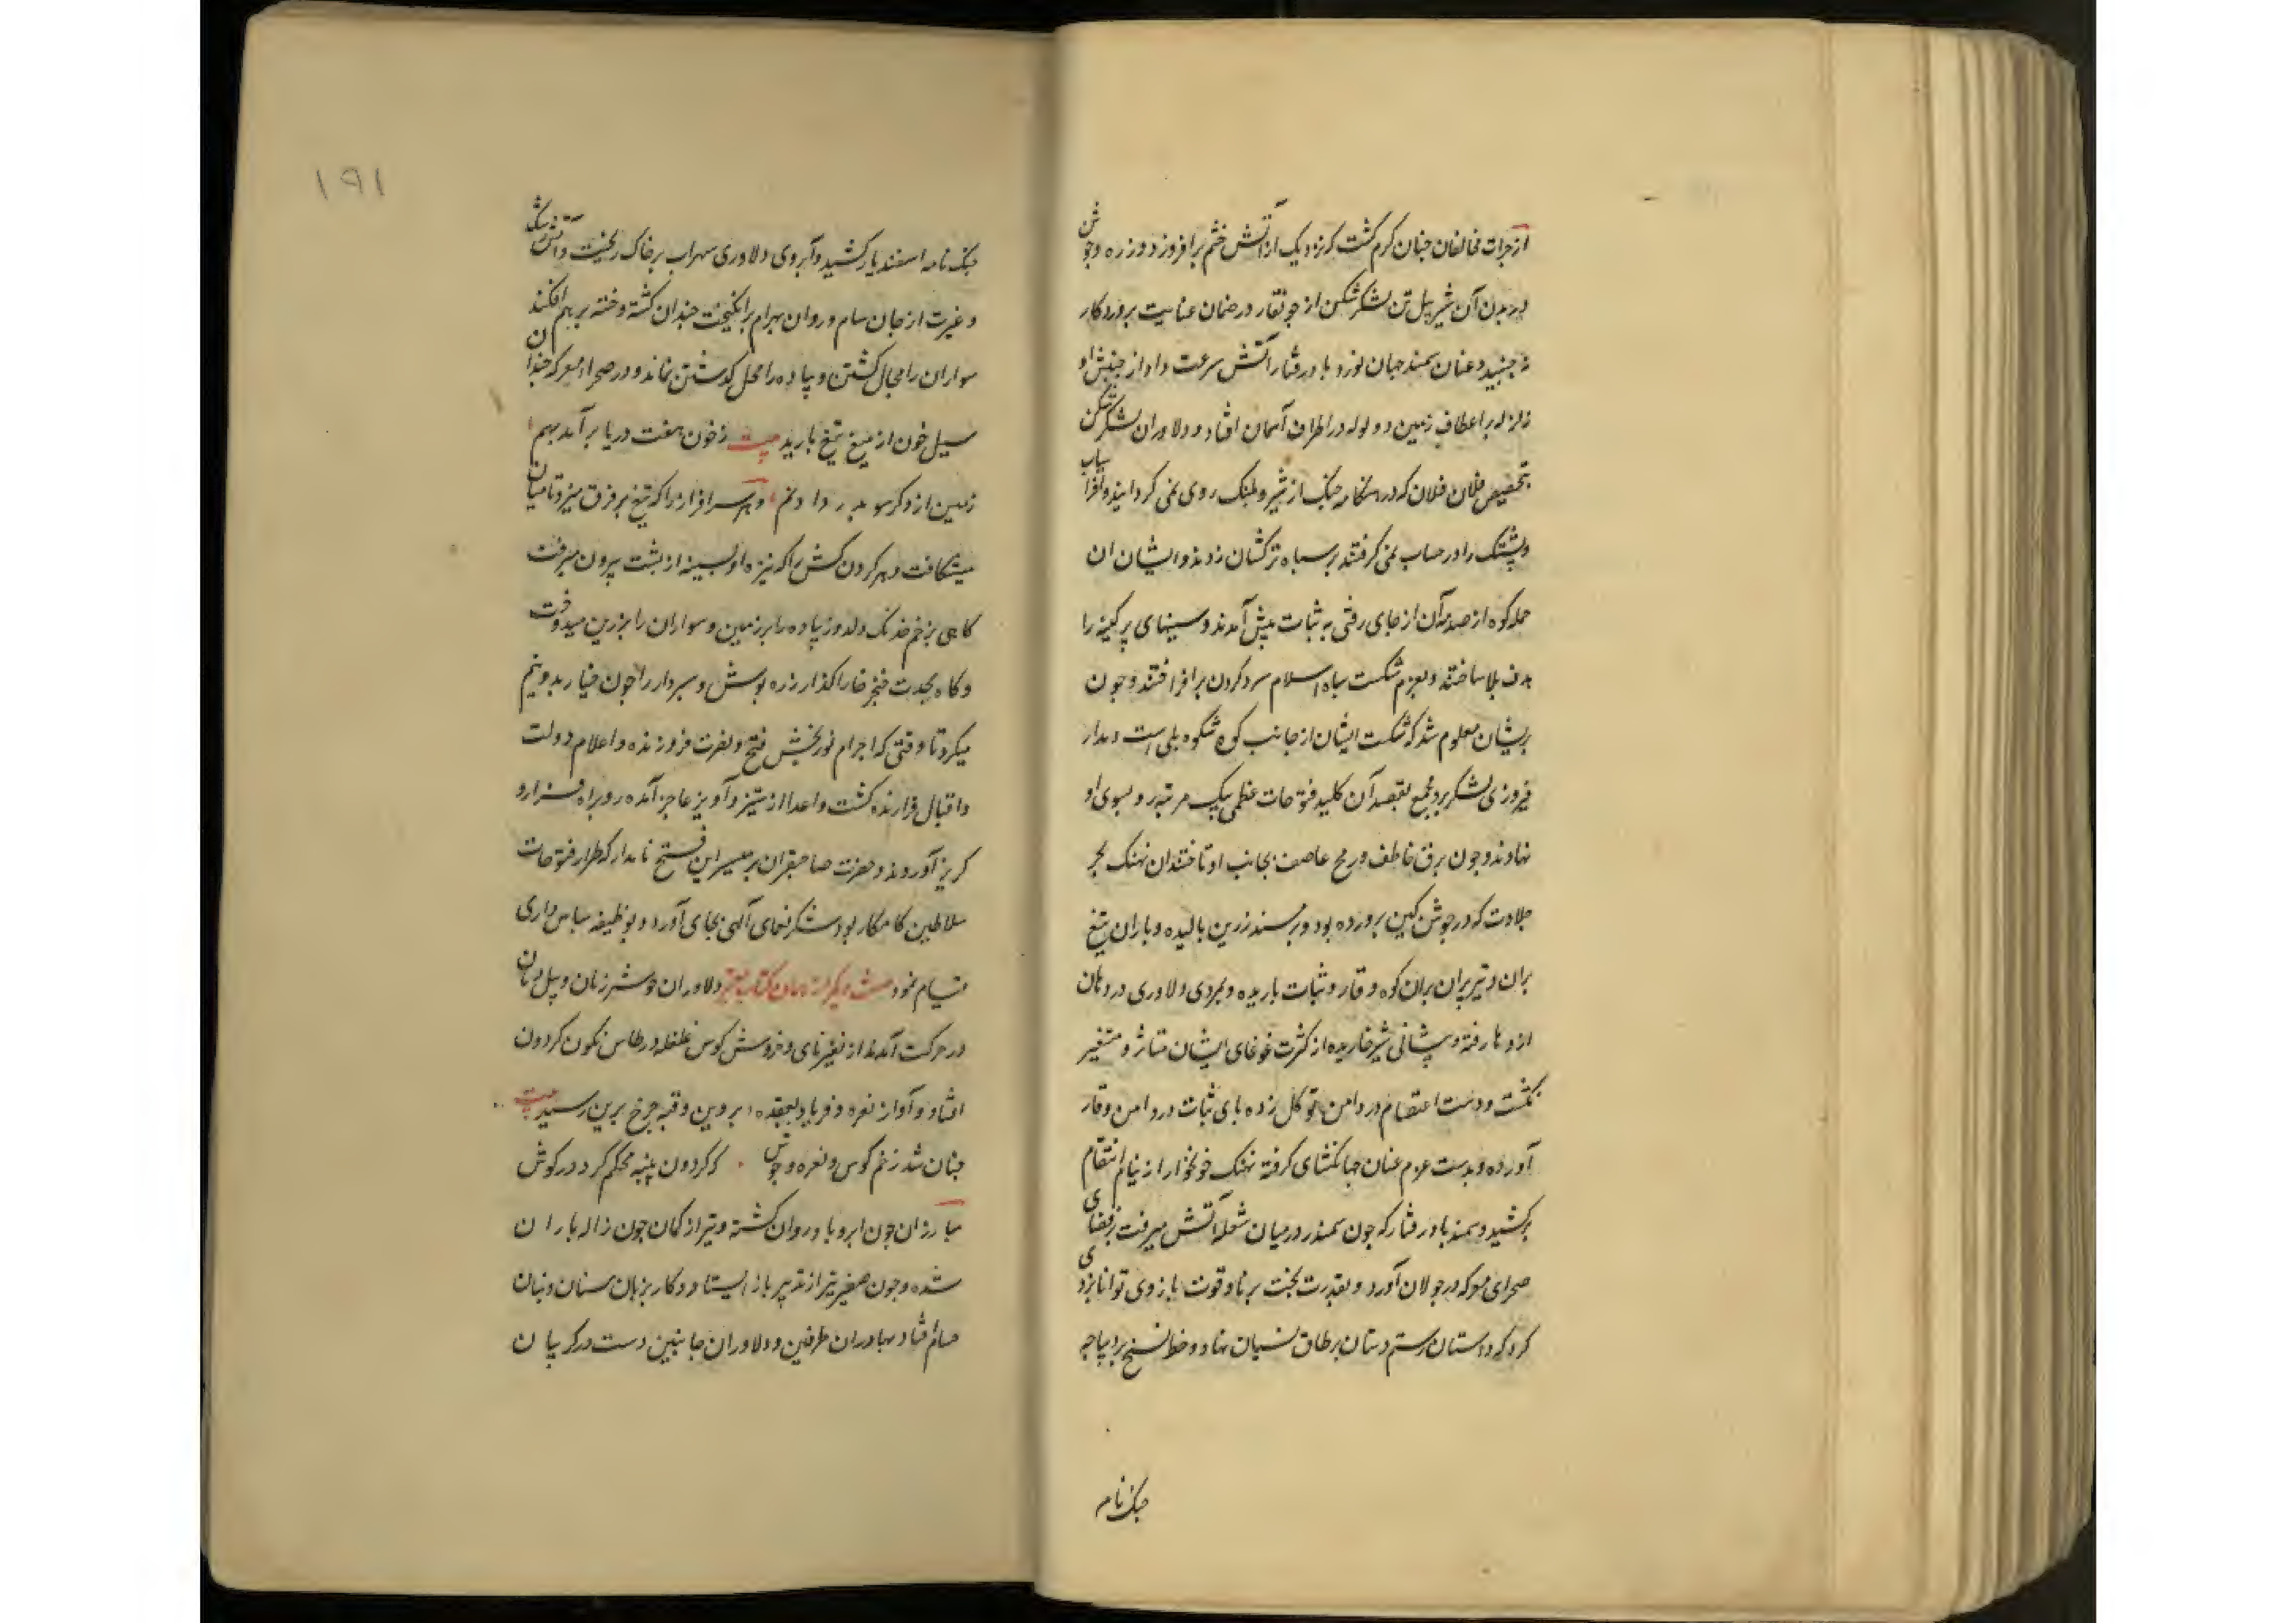 از جرات مخالفان جنان کرم کشت که نزدیک از آتش خشم برافروزد و زره و جوشن
بر بدن آن شیر پیل تن لشکر شکن از جو نقار در ضمان عنایت پروردکار
جنبید و عنان سمند جهان نورد باد رفتار آتش سرعت داد از جنبش او
زلزله بر اعطاف زمین و ولوله در اطراف آسمان افتاد و دلاوران لشکر شکن
بتخصیص فلان فلان که در هنکامه جنک از شیر و پلنک روی نمی کردانیدند و افراسیاب
و پشنک را در حساب نمی کرفتند بر سپاه ترکشان زدند و ایشان ان
حمله کوه از صدمه آن از جای رفتی به ثبات پیش آمدند و سینهای پر کینه را
هدف بلا ساختند و بعزم شکست سپاه اسلام سر و کردن برافراختند و جون
بریشان معلوم شد که شکست ایشان از جانب کوه شکوه یلی است و مدار
فیروزی لشکر برو مجمع بقصد آن کلید فتوحات عظمی بیک مرتبه رو بسوی او
نهادند و جون برق خاطف و ریح عاصف بجانب او تاختند ان نهنک بحر
جلادت که در جوشن کین پرورده بود و بر مسند زرین بالیده و باران تیغ
بران و تیر پران بران کوه وقار و ثبات باریده و بمردی و لاوری در دهان
اژدها رفته و پیشانی شیر خاریده از کثرت غوغای ایشان متاثر و متغیر
نکشت و دست اعتصام در دامن توکل زده پای ثبات در دامن وقار
آورده و بدست عزم عنان جهانکشای کرفته نهنک خونخوار از نیام انتقام
برکشید و سمند باد رفتار که جون سمندر در میان شعله آتش میرفت بفضای
صحرای معرکه در جولان آورد و بقدرت بخت برنا و قوت بازوی توانا نبردی
کرد که داستان رستم دستان بر طاق نسیان نهاد و خط نسخ بر دیباجه
جنک نامه
۱۹۱
جنک نامه اسفندیار کشید و آبروی دلاوری سهراب بر خاک ریخت و آتش
و غیرت از جان سام و روان بهرام برانکیخت جندان کشته و خسته بر هم افکند
سواران را مجال کشتن و پیاده را محل کدشتن نماند و در صحراء معرکه جندان
سیل خون از میغ تیغ بارید بیت ز خون هفت دریا برآمد بهم
زمین از دکر سو بدر داد نم و هر سرافراز را که تیغ بر فرق میزد تا میان
میشکافت و هر کردن کش را که نیزه او بسینه از پشت بیرون میرفت
کاهی بزخم خدنک دلدوز پیاده را بر زمین و سواران را بر زین میدوخت
و کاه بحدت خنجر خارا کذار زره پوش و سپردار را جون خیار بدو نیم
میکرد تا وقتی که اجرام نور بخش فتح و نصرت فروزنده و اعلام دولت
و اقبال فرازنده کشت و اعدا از ستیز و آویز عاجز آمده رو براه فرار و
کریز آوردند و حضرت صاحبقران بر تیسیر این فتح نامدار که طراز فتوحات
سلاطین کامکار بود شکر نعمای آلهی بجای آورد و بوظیفه سپاس داری
قیام نمود دلاوران جو شیر ژیان و پیل دمان
در حرکت آمدند از نفیر نای و خروش کوس غلغله در طاس نکون کردون
افتاد و آواز نعره و فریاد بعقده پروین و قبه جرخ برین رسید بیت
جنان شد زخم کوس و نعره و جوش که کردون پنبه محکم کرد در کوش
مبارزان جون ابر و باد روان کشته و تیر از کمان جون ژاله باران
شده و جون صفیر تیر از تدبیر باز ایستاد و کار بزبان سنان و بنان
حسام فتاد بهادران طرفین و دلاوران جانبین دست در کریبان